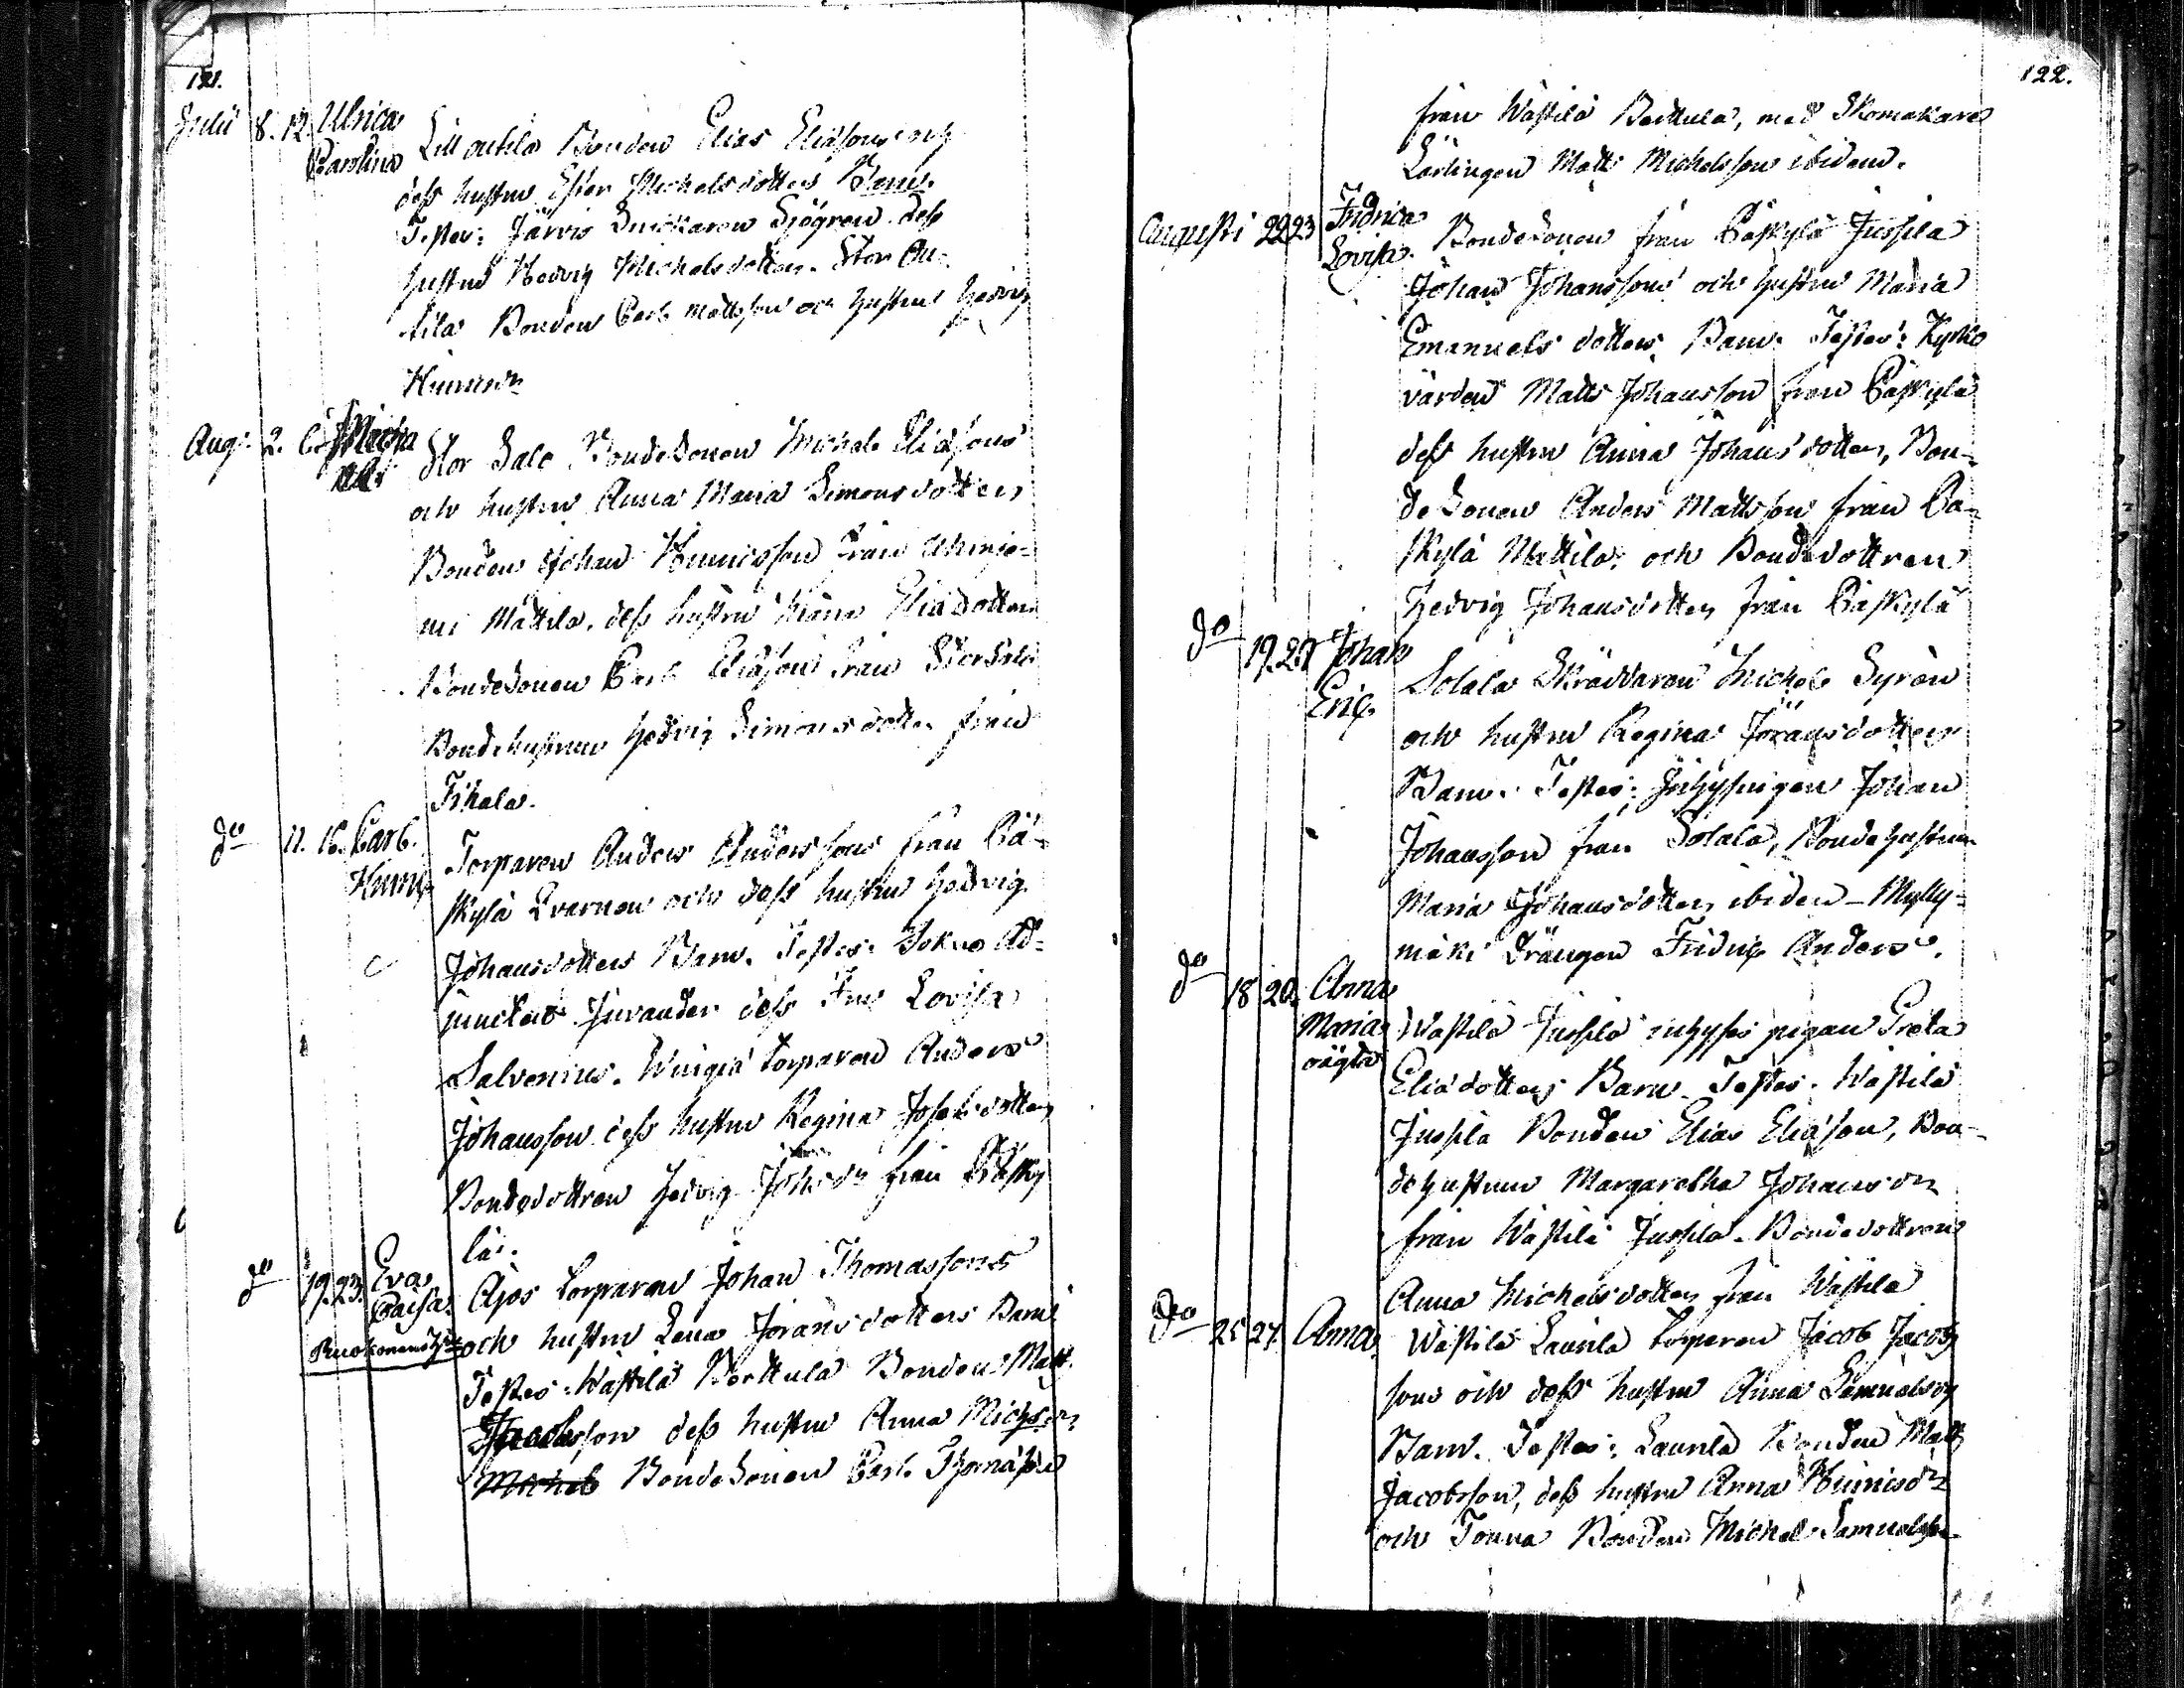 121.
Julii 8. 12. Ulrica Carolina Lill outila Bonden Elias Eliæsons och
dess hustru Ester Michelsdotters Barn.
Testes: Järvis Snickaren Sjögren dess
hustru Hedvig Michelsdotter. Stor Au-
tila Bonden Carl Mattsson och hustru Hedvig
Henricsdr
Aug: 2. Stor Sale Bondesonen Michel Eliæsons
och hustru Anna Maria Simonsdotters
Bonden Johan Henricsson från
mi Mattila, dess hustru Maria Eliædotter
Bondesonen Carl Eliæson från Storsale
Bondehustrun Hedvig Simonsdotter från
Tihala.
do 11. 16. Carl Henric Torparen Anders Anderssons från Cä-
skylä Qvarnen och dess hustru Hedvig
Johansdotters Barn. Testes: Sokne Ad-
juncten dess Fru Lovisa
Salvenius. Torparen Anders
Johansson dess hustru Regina Josephsdotter
Bondedottren Hedvig Johsdr från Cäsky
lä.
do 19. 23. Eva Caisa. Ajos Torparen Johan Thomassons
Ruokonemi och hustru Lena Joransdotters Barn
Testes: Wästilä Perttula Bonden Matt
Jacobsson dess hustru Anna Michsdr
Michel Bondesonen Carl Thomasson
122.
från Wästilä Perttula, med Skomakare
Lärlingen Matts Michelsson ibidem.
Augusti 22 23 Fridrica Lovisa. Bondesonen från Cäskylä Jussila
Johan Johanssons och hustru Maria
Emanuels dotters Barn. Testes: Kyrko
värden Matts Johansson från Cäskylä
dess hustru Anna Johansdotter, Bon-
de Sonen Anders Mattsson från Cä-
skylä Mattila, och Bondedottren
Hedvig Johansdotter från Cäskylä
do 19. 27 Johan Eric. Solala Skräddaren Michel Syrèn
och hustru Regina Jöransdotters
Barn. Testes: Inhysingen Johan
Johansson från Solala, Bondehustrun
Maria Johansdotter ibidem - Mylly-
mäki Drängen Fridric Anders.
do 18 20. Anna Maria oägta Wästilä Jussila inhyses pigan Greta
Eliædotters Barn. Testes. Wästilä
Jussila Bonden Elias Eliæson, Bon-
dehustrun Margaretha Johansdr
från Wästilä Jussila. Bondedottren
Anna Michelsdotter från Wästilä
do 25 27. Anna. Wästilä Laurila Torparen Jacob Jacob
sons och dess hustru Anna Samuelsdr
Barn. Testes: Laurila Bonden Matts
Jacobsson, dess hustru Anna Henricsdr
och Tonna Bonden Michel Samuelsson